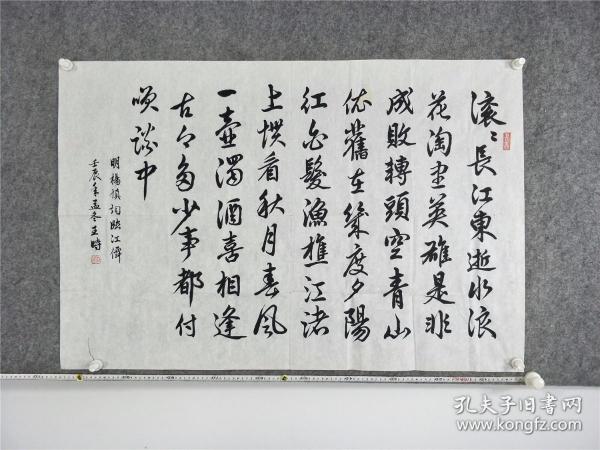 滚〻長江東逝水浪
花淘盡英雄是非
成敗轉頭空青山
依舊在幾度夕陽
紅白髮漁樵江渚
上慣看秋月春風
一壺濁酒喜相逢
古今多少事都付
笑談中
明楊慎詞臨江僊
壬辰年孟冬王時
孔夫子旧书网
www.kongfz.com